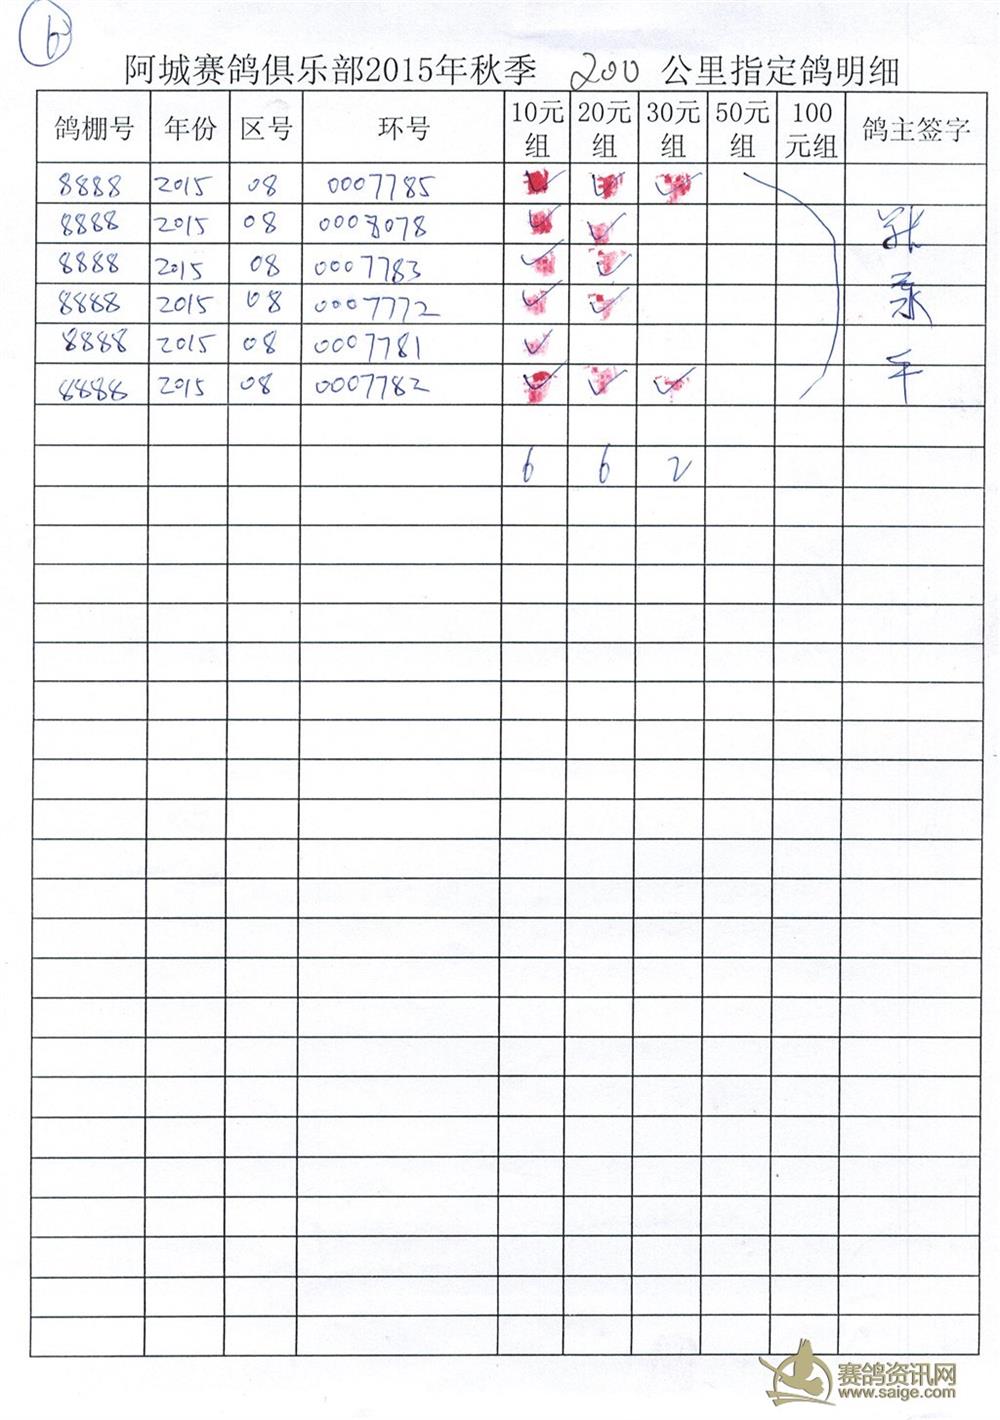 6
阿城赛鸽俱乐部2015年秋季 200 公里指定鸽明细
鸽棚号 年份 区号 环号 10元组 20元组 30元组 50元组 100元组 鸽主签字
8888 2015 08 0007785 ✓ ✓ ✓
8888 2015 08 0008078 ✓ ✓
8888 2015 08 0007783 ✓ ✓
8888 2015 08 0007772 ✓ ✓
8888 2015 08 0007781 ✓
8888 2015 08 0007782 ✓ ✓ ✓
6 6 2
赛鸽资讯网
www.saige.com